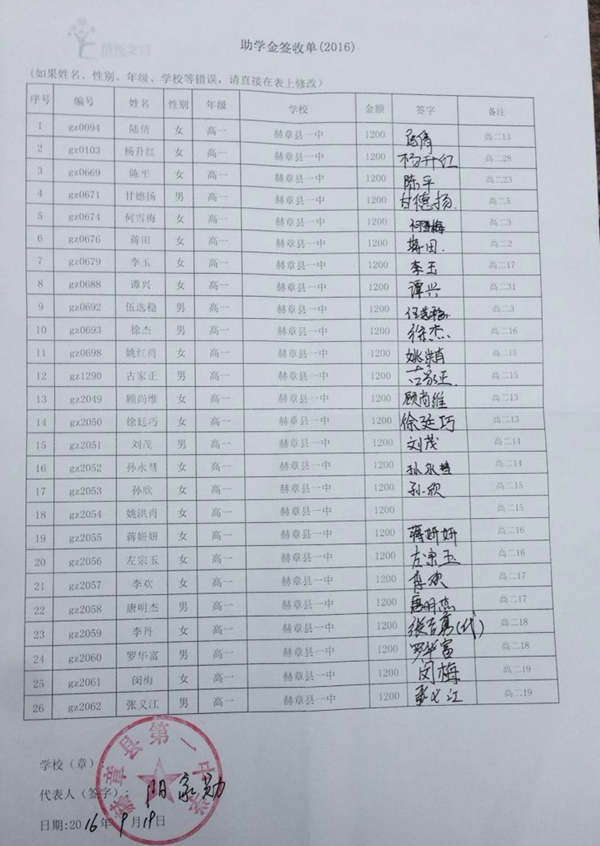 助学金签收单(2016)
(如果姓名、性别、年级、学校等错误，请直接在表上修改)
序号 编号 姓名 性别 年级 学校 金额 签字 备注
1 gz0094 陆倩 女 高一 赫章县一中 1200 陆倩 高二13
2 gz0103 杨开红 女 高一 赫章县一中 1200 杨开红 高二28
3 gz0669 陈平 女 高一 赫章县一中 1200 陈平 高二23
4 gz0671 甘德扬 男 高一 赫章县一中 1200 甘德扬 高二5
5 gz0674 何雪梅 女 高一 赫章县一中 1200 何雪梅 高二3
6 gz0676 蒋田 女 高一 赫章县一中 1200 蒋田 高二2
7 gz0679 李玉 女 高一 赫章县一中 1200 李玉 高二17
8 gz0688 谭兴 女 高一 赫章县一中 1200 谭兴 高二31
9 gz0692 伍选稳 男 高一 赫章县一中 1200 伍选稳 高二3
10 gz0693 徐杰 男 高一 赫章县一中 1200 徐杰 高二16
11 gz0698 姚红肖 女 高一 赫章县一中 1200 高二15
12 gz1290 古家正 男 高一 赫章县一中 1200 古家正 高二15
13 gz2049 顾尚维 女 高一 赫章县一中 1200 顾尚维 高二13
14 gz2050 徐廷巧 女 高一 赫章县一中 1200 徐廷巧 高二13
15 gz2051 刘茂 男 高一 赫章县一中 1200 刘茂 高二14
16 gz2052 孙永彗 女 高一 赫章县一中 1200 孙永彗 高二14
17 gz2053 孙欣 女 高一 赫章县一中 1200 孙欣 高二15
18 gz2054 姚洪肖 女 高一 赫章县一中 1200
19 gz2055 蒋妍妍 女 高一 赫章县一中 1200 蒋妍妍 高二16
20 gz2056 左宗玉 女 高一 赫章县一中 1200 左宗玉 高二16
21 gz2057 李欢 女 高一 赫章县一中 1200 李欢 高二17
22 gz2058 唐明杰 男 高一 赫章县一中 1200 唐明杰 高二17
23 gz2059 李丹 女 高一 赫章县一中 1200 (代) 高二18
24 gz2060 罗华富 男 高一 赫章县一中 1200 罗华富 高二18
25 gz2061 闵梅 女 高一 赫章县一中 1200 闵梅 高二19
26 gz2062 张义江 男 高一 赫章县一中 1200 张义江 高二19
学校（章）：
赫章县第一中学
代表人（签字）：阳家勋
日期:2016年9月19日